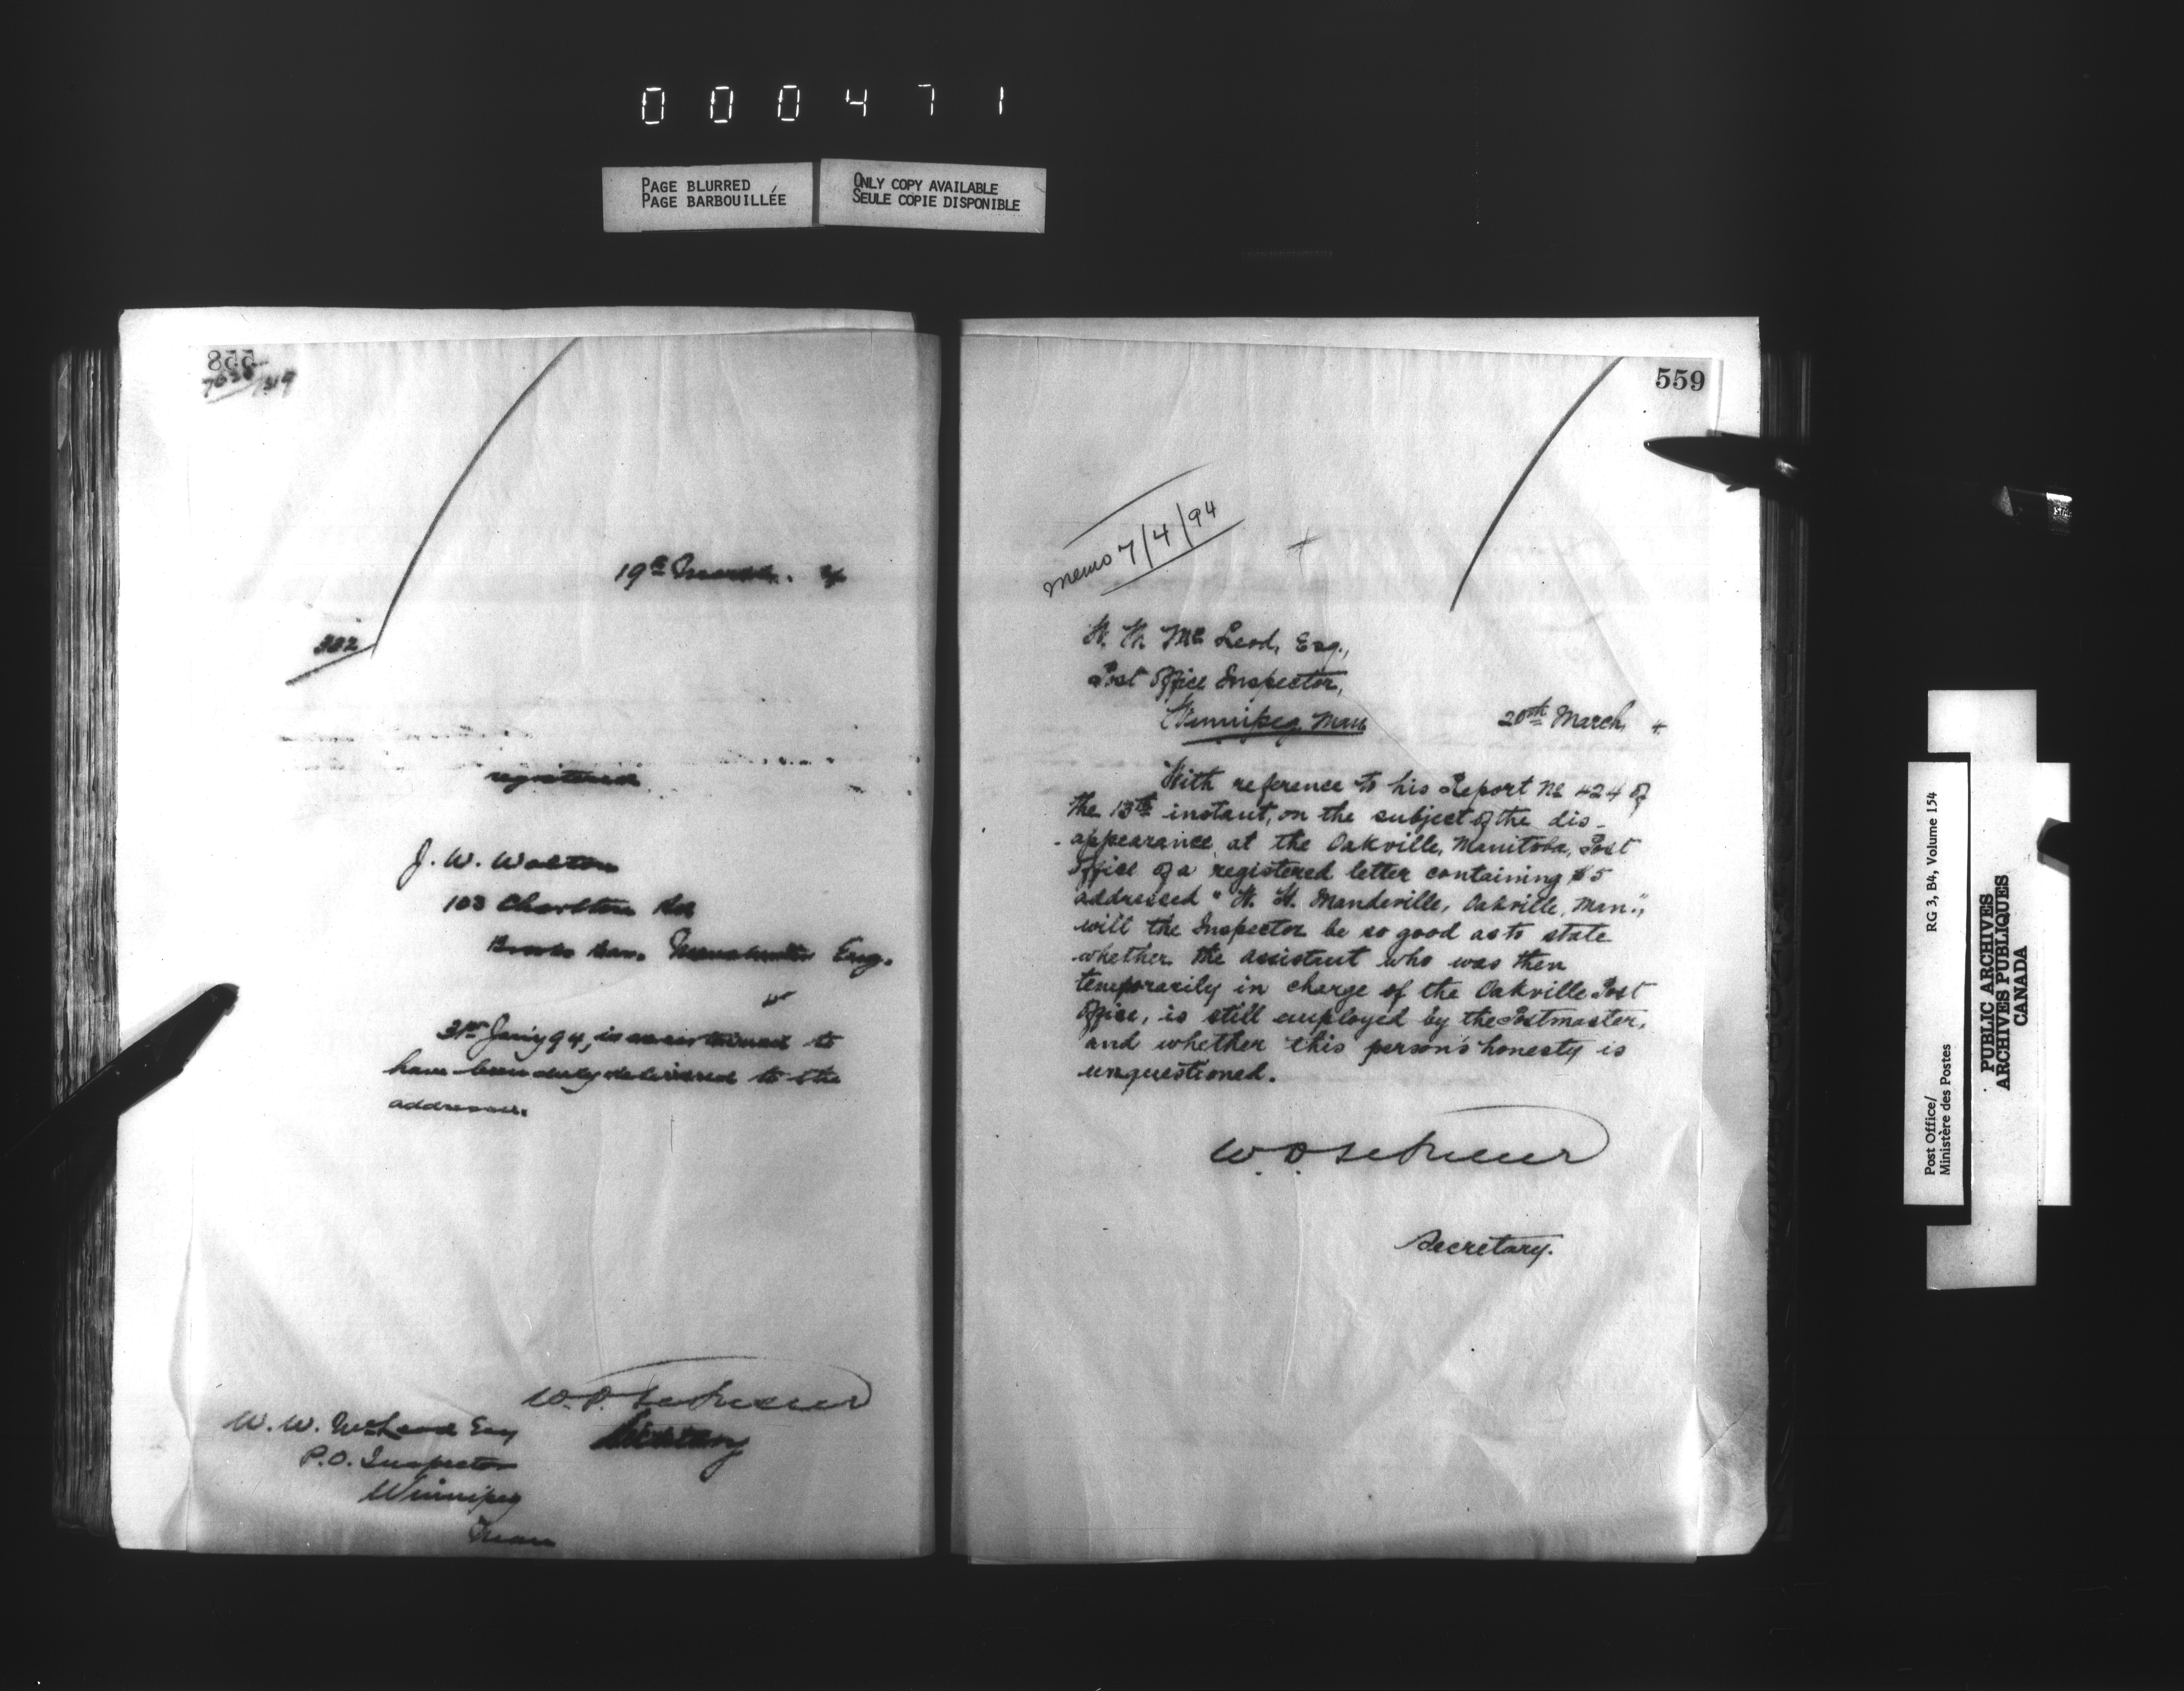 000471
PAGE BLURRED
PAGE BARBOUILLÉE
ONLY COPY AVAILABLE
SEULE COPIE DISPONIBLE
558
19th March. 4
322
registered
J. W. Walton
103 Charlton Rd
Eng.
31st Jan'y 94, is ascertained to
have been duly delivered to the
addressee.
Secretary
W. W. McLeod Esq
P.O. Inspector
Winnipeg
Man
559
memo 7/4/94
W. W. McLeod, Esq.,
Post Office Inspector,
Winnipeg, Man
20th March, 4
With reference to his Report No 424 of
the 13th instant, on the subject of the dis-
-appearance, at the Oakville, Manitoba, Post
Office of a registered letter containing $5
addressed "W. H. Mandeville, Oakville, Man.",
will the Inspector be so good as to state
whether the assistant who was then
temporarily in charge of the Oakville Post
Office, is still employed by the Postmaster,
and whether this person's honesty is
unquestioned.
Secretary.
Post Office/
Ministère des Postes
RG 3, B4, Volume 154
PUBLIC ARCHIVES
ARCHIVES PUBLIQUES
CANADA